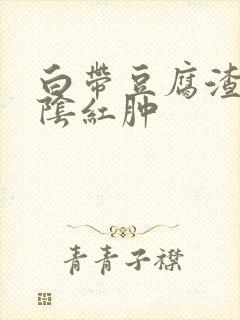 白帶豆腐渣
陰紅肿
青青子襟